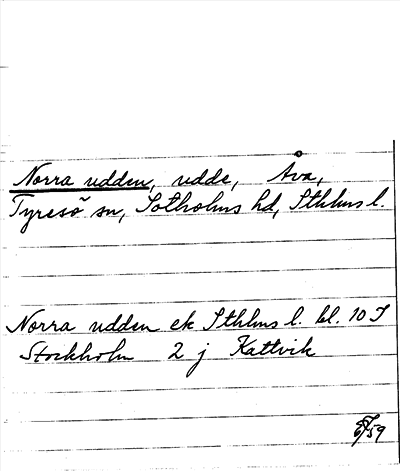 Norra udden, udde, Åva,
Tyresö sn, Sotholms hd, Sthlms l.
Norra udden ek Sthlms l. bl. 10 I
Stockholm 2 j Kattvik